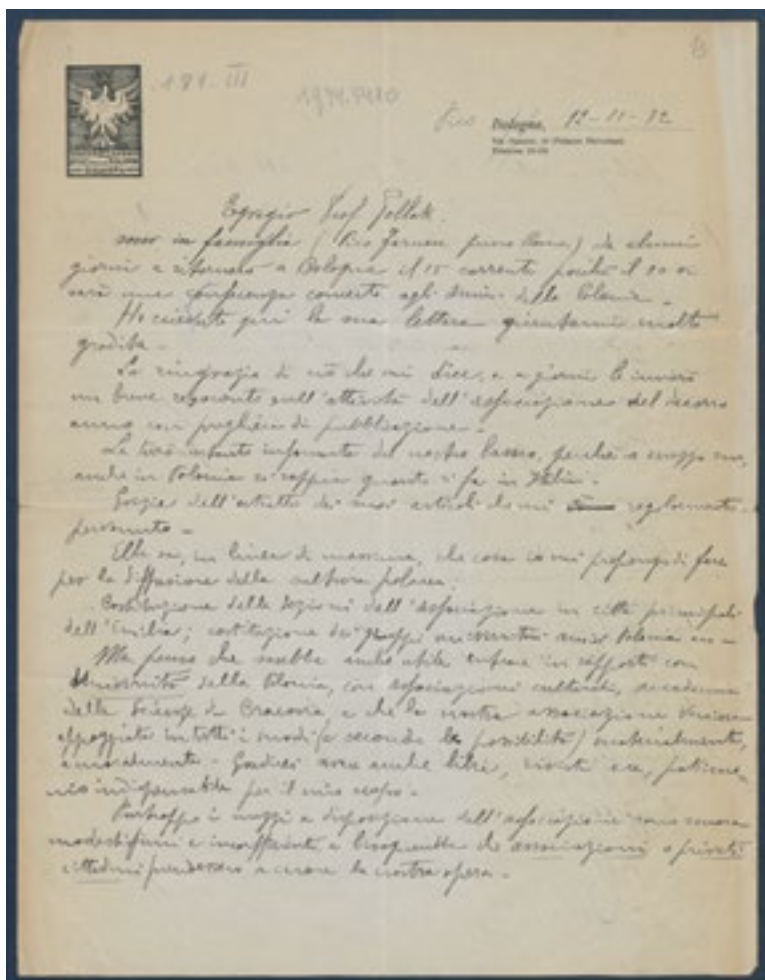 191. III
Bologna, 12-11-32
Egregio Prof. Pollak.
sono in famiglia ( da alcuni
giorni e ritornerò a Bologna il 15 corrente poiché il 20 vi
sarà una conferenza concerto agli Amici della Polonia -
Ho ricevuto qui la sua lettera giuntami molto
gradita -
La ringrazio di ciò che mi dice, e a giorni le invierò
un breve resoconto sull'attività dell'associazione del decorso
anno con preghiera di pubblicazione -
La terrò informata del nostro lavoro, perché a mezzo suo,
anche in Polonia si sappia quanto si fa in Italia -
Grazie dell'estratto dei suoi articoli da mi regolarmente
pervenuto -
Ella sa, in linea di massima, che cosa io mi propongo di fare
per la diffusione della cultura polacca.
Costituzione delle Sezioni dell'Associazione in città principali
dell'Emilia; costituzione dei gruppi universitari amici Polonia
Ma penso che sarebbe anche utile entrare in rapporti con
Università della Polonia, con associazioni culturali, accademia
delle Scienze di Cracovia, e che la nostra associazione venisse
appoggiata in tutti i modi (a seconda le possibilità) materialmente,
e moralmente - Gradirei avere anche libri, riviste ecc,
indispensabile per il mio scopo -
Purtroppo i mezzi a disposizione dell'associazione sono ancora
modestissimi e insufficienti e bisognerebbe che associazioni o privati
cittadini prendessero a cuore la nostra opera -